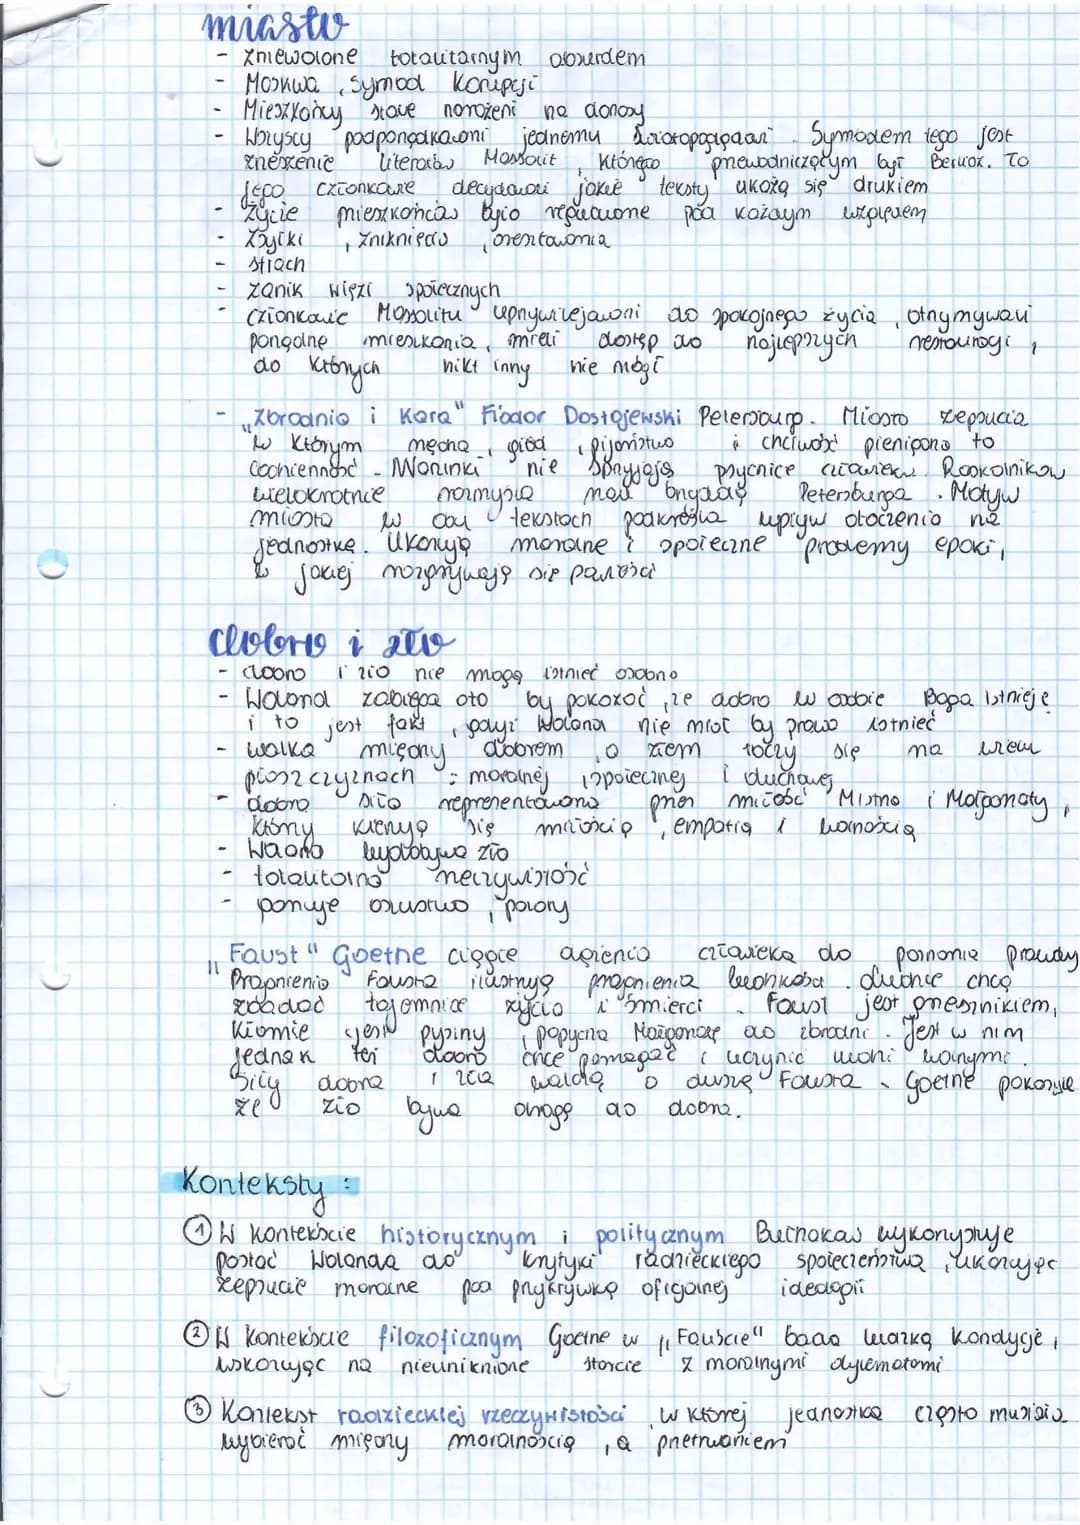 miasto
- zniewolone totalitarnym absurdem
- Moskwa, symbol korupcji
- Mieszkańcy stale narażeni na donosy
- Wszyscy podporządkowani jednemu światopoglądowi. Symbolem tego jest
zrzeszenie literatów Massolit, którego przewodniczącym był Berlioz. To
jego członkowie decydowali jakie teksty ukażą się drukiem
- Życie mieszkańców było regulowane pod każdym względem
- Zsyłki, zniknięcia, aresztowania
- strach
- zanik więzi społecznych
- członkowie Massolitu uprzywilejowani do spokojnego życia, otrzymywali
porządne mieszkania, mieli dostęp do najlepszych restauracji,
do których nikt inny nie mógł
- "Zbrodnia i Kara" Fiodor Dostojewski Petersburg. Miasto zepsucia
w którym nędza, głód, pijaństwo i chciwość pieniądza to
codzienność. Warunki nie sprzyjają psychice człowieka. Raskolnikow
wielokrotnie rozmyśla nad brzydotą Petersburga. Motyw
miasta w obu tekstach podkreśla wpływ otoczenia na
jednostkę. Ukazują moralne i społeczne problemy epoki,
w jakiej rozgrywają się powieści
dobro i zło
- dobro i zło nie mogą istnieć osobno
- Woland zabiega oto by pokazać, że dobro w osobie Boga istnieje
i to jest fakt, gdyż Woland nie miał by prawa istnieć
- walka między dobrem, a złem toczy się na wielu
płaszczyznach: moralnej, społecznej i duchowej
- dobro siła reprezentowana przez miłość Mistrza i Małgorzaty,
którzy kierują się miłością, empatią i wolnością
- Władza wydobywa zło
- totalitarna rzeczywistość
- panuje oszustwo, pozory
"Faust" Goethe ciągłe dążenia człowieka do poznania prawdy
Pragnienia Fausta ilustrują pragnienia ludzkości. Ludzie chcą
zbadać tajemnice życia i śmierci. Faust jest grzesznikiem,
kłamie jest pyszny, popycha Małgorzatę do zbrodni. Jest w nim
jednak też dobro chce pomagać i uczynić ludzi wolnymi.
Siły dobra i zła walczą o duszę Fausta. Goethe pokazuje
że zło bywa drogą do dobra.
Konteksty:
① W kontekście historycznym i politycznym Bułhakow wykorzystuje
postać Wolanda do krytyki radzieckiego społeczeństwa, ukazując
zepsucie moralne pod przykrywką oficjalnej ideologii
② W kontekście filozoficznym Goethe w "Fauście" bada ludzką kondycję,
wskazując na nieuniknione starcie z moralnymi dylematami
③ Kontekst radzieckiej rzeczywistości w której jednostka często musiała
wybierać między moralnością, a przetrwaniem